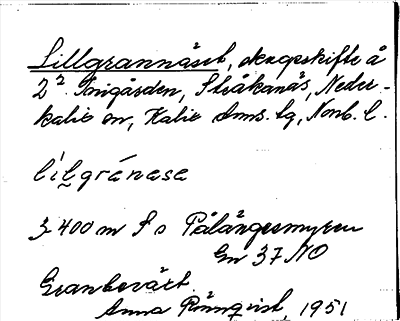 Lillgrannäset, skogsskifte å
2² Inigården, Stråkanäs, Neder-
kalix sn, Kalix tings. lg, Norrb. l.
lílgránasɛ
3-400 m S o Pålängesmyren
Gn 37 NO
Granbeväxt.
Anna Rönnqvist, 1951